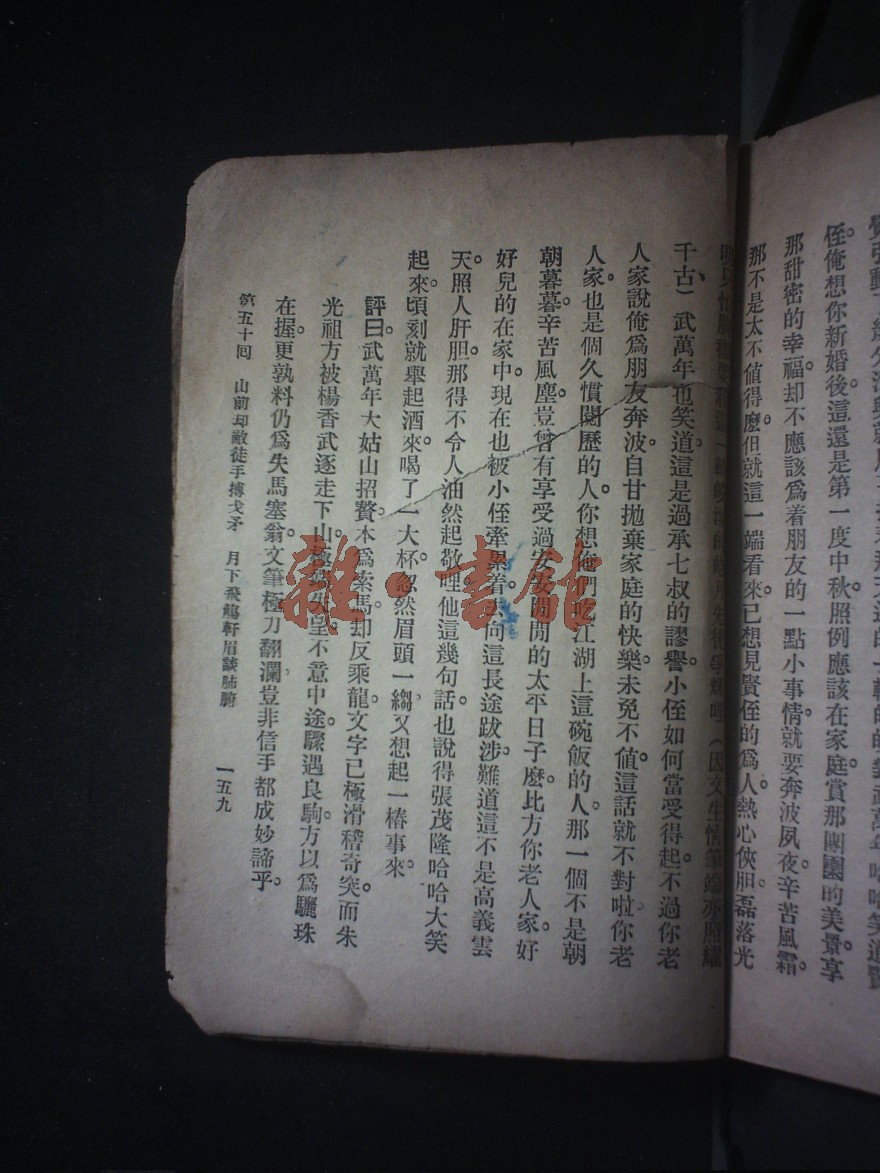 侄。俺想你新婚後。這還是第一度中秋。照例應該在家庭賞那團圓的美景。享
那甜密的幸福。却不應該爲着朋友的一點小事情。就要奔波夙夜。辛苦風霜。
那不是太不值得麽。但就這一端看來。已想見賢侄的爲人。熱心俠胆。磊落光
千古）武萬年也笑道。這是過承七叔的謬譽。小侄如何當受得起。不過你老
人家說俺爲朋友奔波。自甘拋棄家庭的快樂。未免不值。這話就不對啦。你老
人家。也是個久慣閱歷的人。你想俺們吃江湖上這碗飯的人。那一個不是朝
朝暮暮。辛苦風塵。豈曾有享受過安安閒閒的太平日子麽。比方你老人家。好
好兒的在家中。現在也被小侄牽累着去向這長途跋涉。難道這不是高義雲
天。照人肝胆。那得不令人油然起敬哩。他這幾句話。也說得張茂隆哈哈大笑
起來。頃刻就舉起酒來。喝了一大杯。忽然眉頭一縐。又想起一樁事來。
評曰。武萬年大姑山招贅。本爲索馬。却反乘龍。文字已極滑稽奇突。而朱
光祖方被楊香武逐走下山。不意中途。驟遇良駒。方以爲驪珠
在握。更孰料仍爲失馬塞翁。文筆極刀翻瀾。豈非信手都成妙諦乎。
第五十回 山前却敵徒手搏戈矛 月下飛觴軒眉談肺腑 一五九
雜·書館